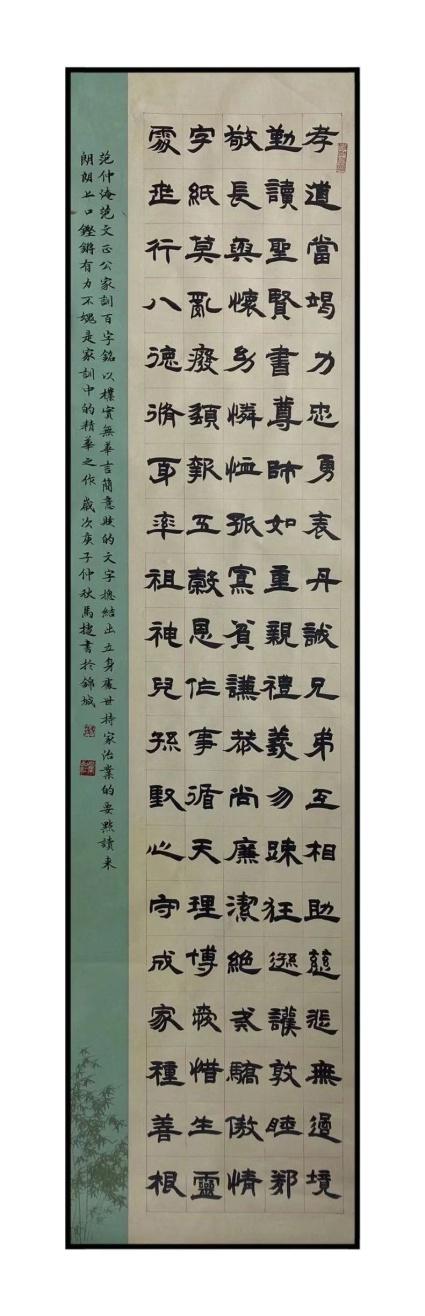 孝道當竭力忠勇表丹誠兄弟互相助慈悲無過境
勤讀聖賢書尊師如重親禮義勿踈狂遜讓敦睦鄰
敬長與懷幼憐恤孤寡貧謙恭尚廉潔絕戒驕傲情
字紙莫亂廢須報五穀恩作事循天理博愛惜生靈
處世行八德修身率祖神兒孫堅心守成家種善根
范仲淹范文正公家訓百字銘以樸實無華言簡意賅的文字總結出立身處世持家治業的要點讀來
朗朗上口鏗鏘有力不愧是家訓中的精華之作歲次庚子仲秋馬捷書於錦城